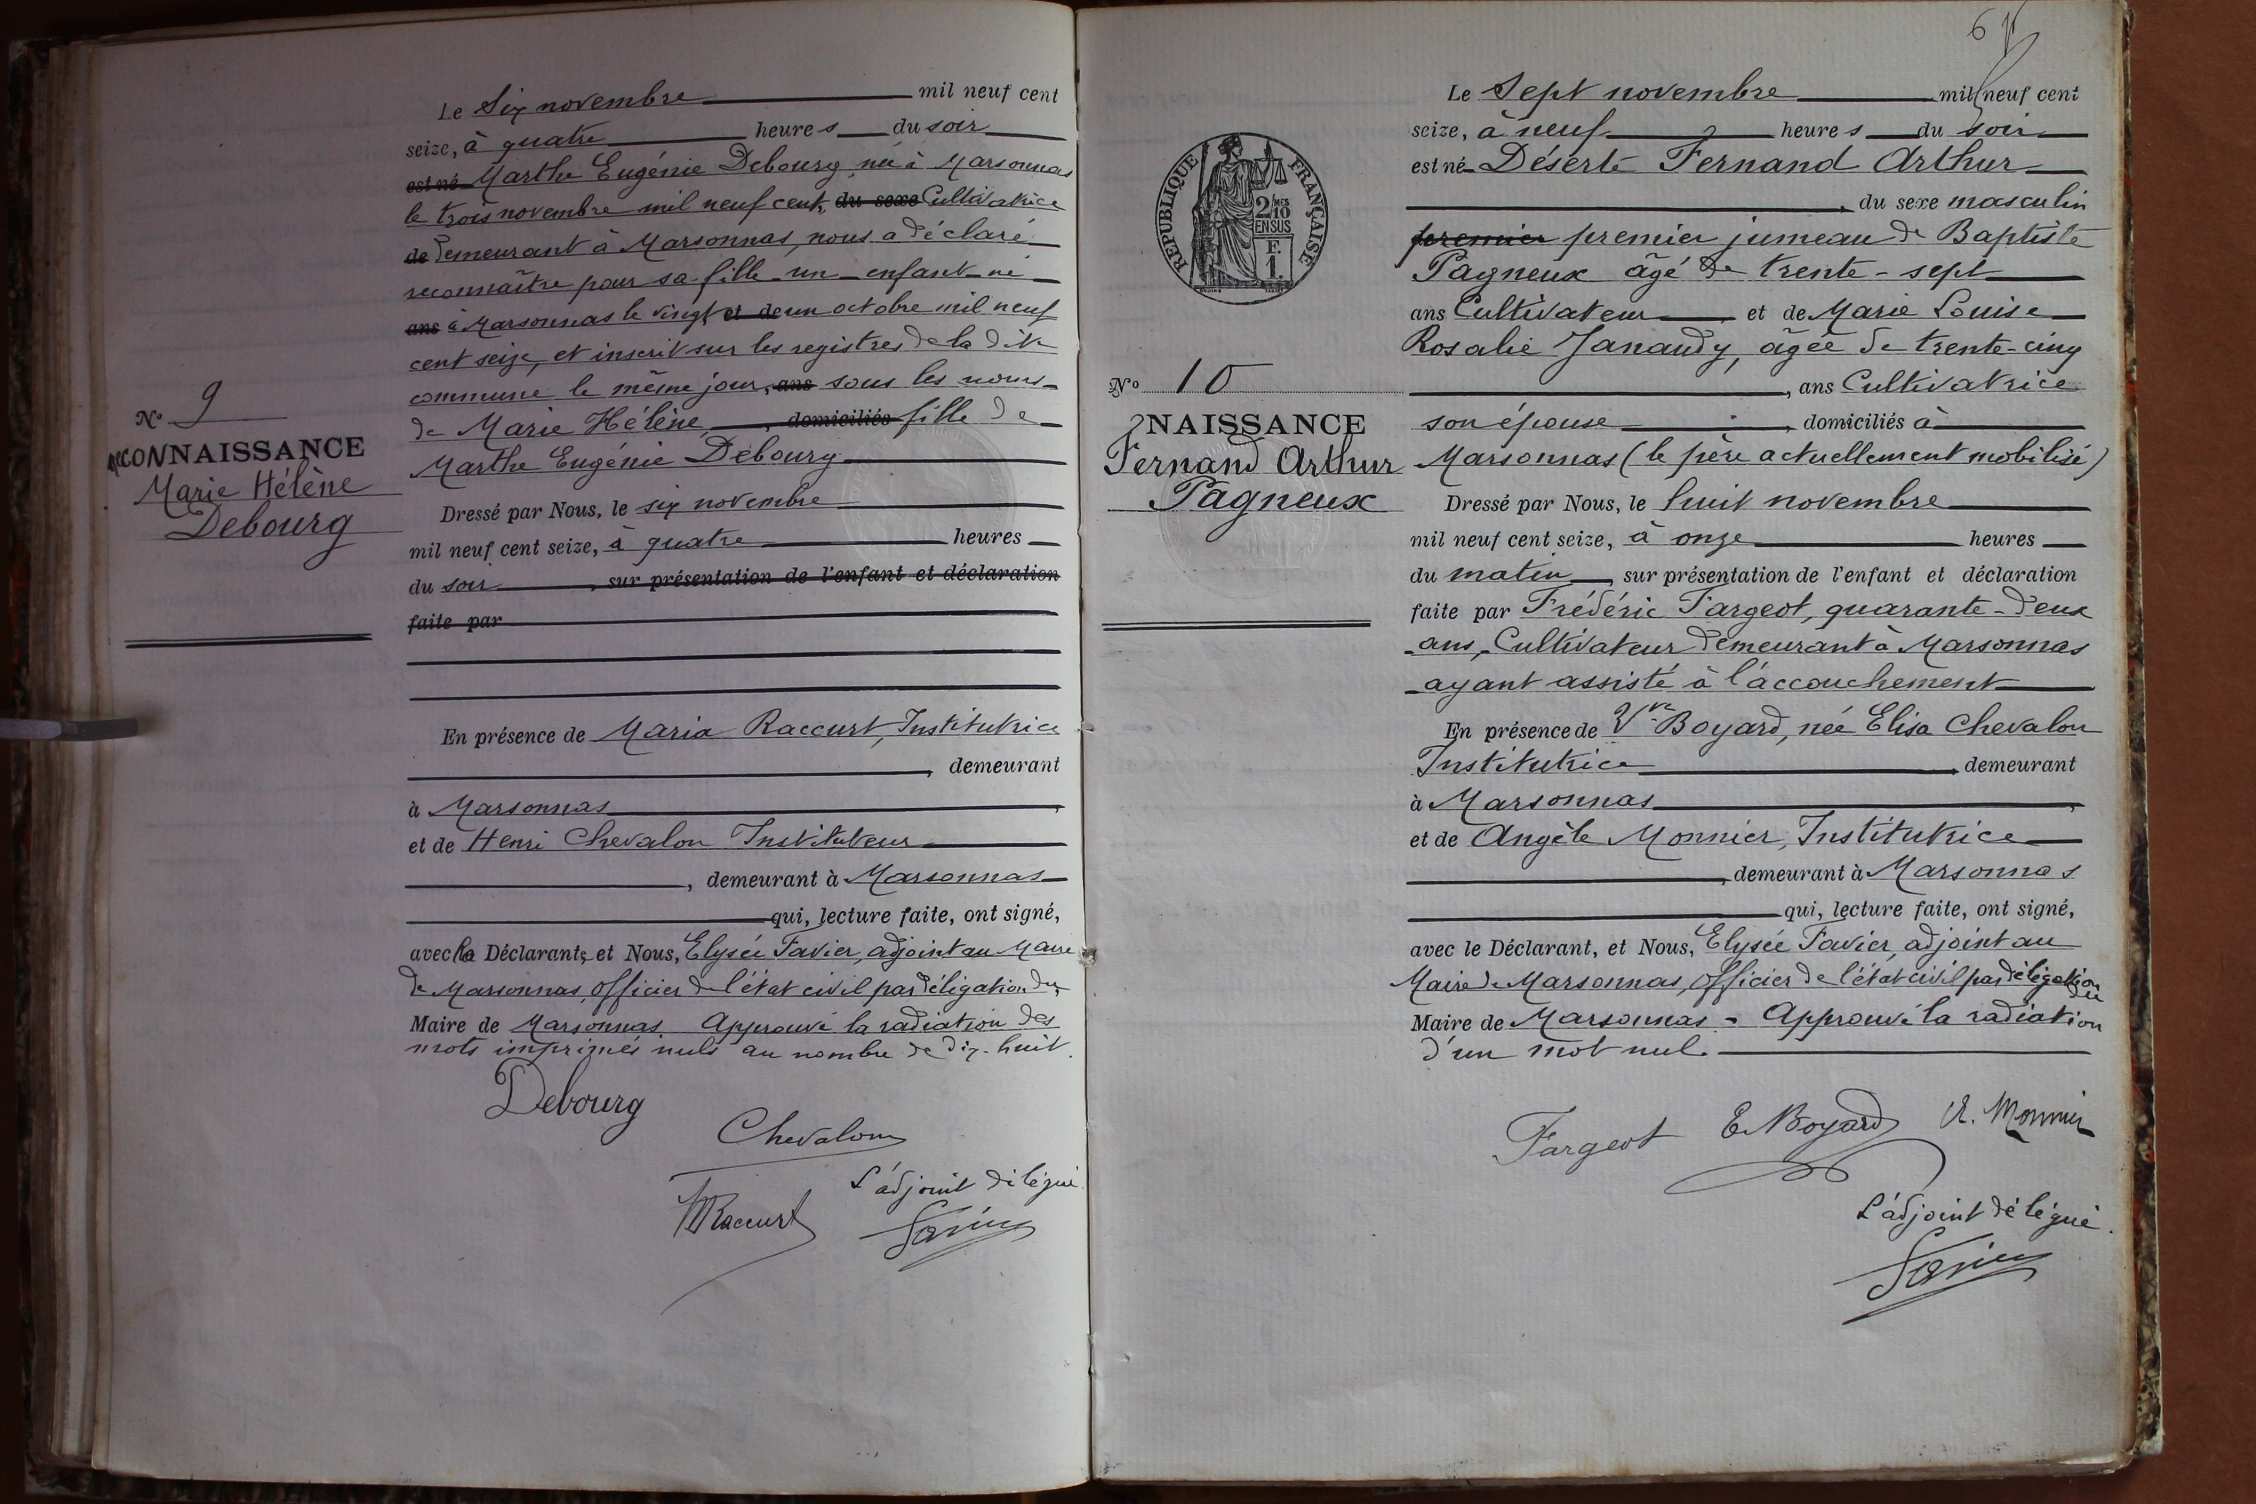 Le Six novembre mil neuf cent
seize, à quatre heures du soir
est né Marthe Eugénie Debourg, née à Marsonnas
le trois novembre mil neuf cent, du sexe Cultivatrice
de demeurant à Marsonnas, nous a déclaré
reconnaître pour sa fille un enfant né
ans à Marsonnas le vingt et de un octobre mil neuf
cent seize, et inscrit sur les registres de la dite
commune le même jour, ans sous les noms
de Marie Hélène, domiciliés fille de
Marthe Eugénie Debourg
Dressé par Nous, le six novembre
mil neuf cent seize, à quatre heures
du soir, sur présentation de l'enfant et déclaration
faite par
En présence de Maria Raccurt, Institutrice
, demeurant
à Marsonnas,
et de Henri Chevalon Instituteur
, demeurant à Marsonnas
qui, lecture faite, ont signé,
avec la Déclarante, et Nous, Elysée Favier, adjoint au Maire
de Marsonnas, officier de l'état civil par délégation du
Maire de Marsonnas Approuvé la radiation des
mots imprimés nuls au nombre de dix-huit.
Debourg
Chevalon
MRaccurt
L'adjoint délégué
Favier
No 9
RECONNAISSANCE
Marie Hélène
Debourg
6
Le Sept novembre mil neuf cent
seize, à neuf heures du soir
est né Déserté Fernand Arthur
, du sexe masculin
premier premier jumeau de Baptiste
Pagneux âgé de trente-sept
ans Cultivateur et de Marie Louise
Rosalie Janaudy, âgée de trente-cinq
, ans Cultivatrice
son épouse, domiciliés à
Marsonnas (le père actuellement mobilisé)
Dressé par Nous, le huit novembre
mil neuf cent seize, à onze heures
du matin, sur présentation de l'enfant et déclaration
faite par Frédéric Fargeot, quarante-deux
ans, Cultivateur demeurant à Marsonnas
ayant assisté à l'accouchement
En présence de Vve Boyard, née Elisa Chevalon
Institutrice, demeurant
à Marsonnas,
et de Angèle Monnier, Institutrice
, demeurant à Marsonnas
qui, lecture faite, ont signé,
avec le Déclarant, et Nous, Elysée Favier, adjoint au
Maire de Marsonnas, officier de l'état civil par délégation du
Maire de Marsonnas - Approuvé la radiation
d'un mot nul.
Fargeot
E Boyard
A. Monnier
L'adjoint délégué.
Favier
RÉPUBLIQUE FRANÇAISE
2/10 MES
EN SUS
F.
1.
No 10
NAISSANCE
Fernand Arthur
Pagneux